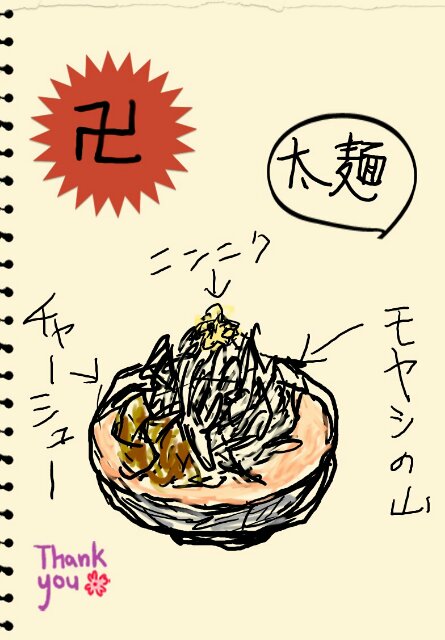 卍
太麺
ニンニク
チャーシュー
モヤシの山
Thank
you